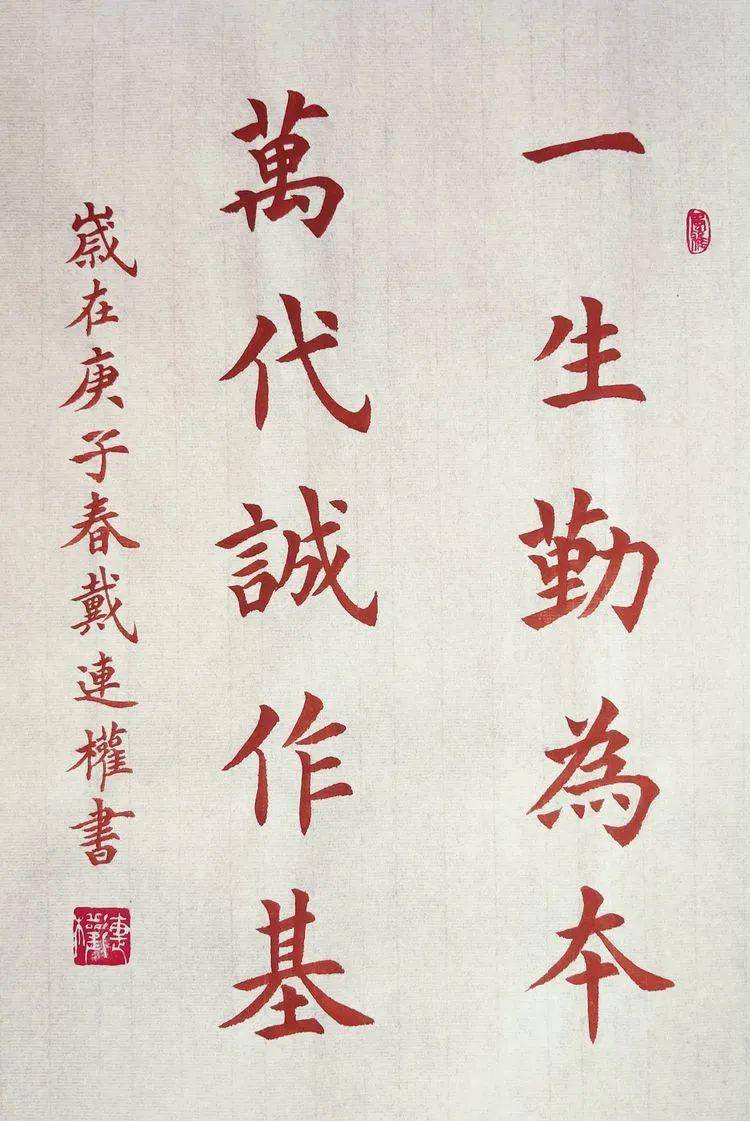 一生勤為本
萬代誠作基
歲在庚子春戴連權書